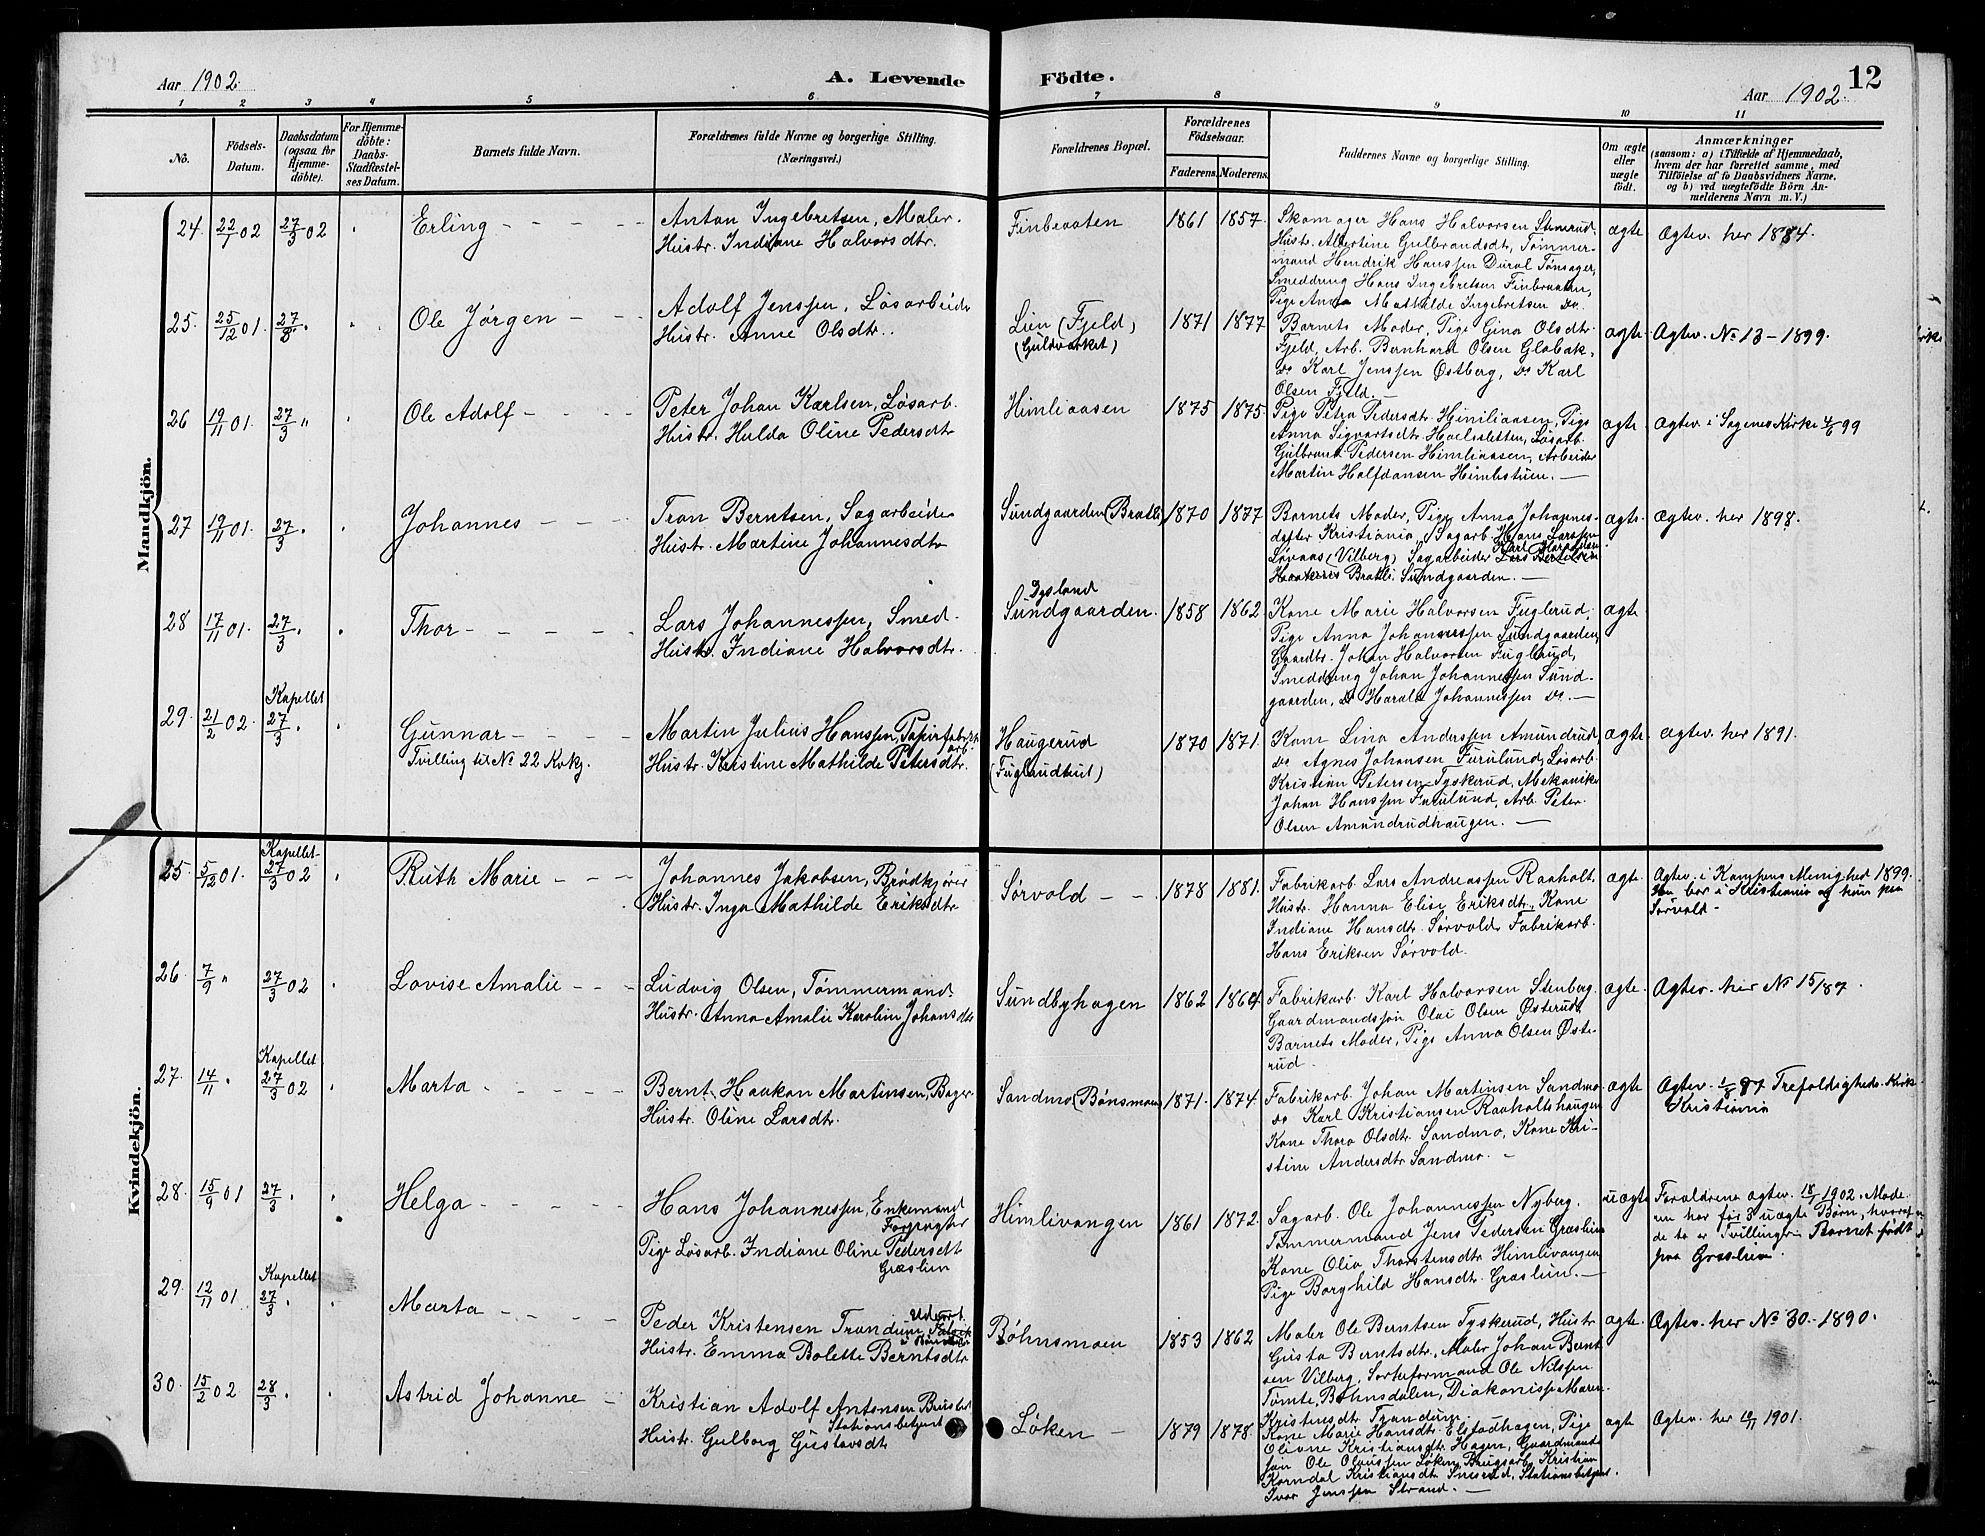 Aar 1902.
A. Levende
Födte.
12
Aar 1902.
1 2 3 4 5 6 7 8 9 10 11
No.
Födsels-
Datum.
Daabsdatum
(ogsaa for
Hjemme-
döbte).
For Hjemme-
döbte:
Daabs-
Stadfæstel-
ses Datum.
Barnets fulde Navn.
Forældrenes fulde Navne og borgerlige Stilling.
(Næringsvei.)
Forældrenes Bopæl.
Forældrenes
Födselsaar.
Faderens.
Moderens.
Faddernes Navne og borgerlige Stilling.
Om ægte
eller
uægte
födt.
Anmærkninger
(saasom: a) i Tilfælde af Hjemmedaab,
hvem der har forrettet samme, med
Tilföielse af to Daabsvidners Navne,
og b) ved uægtefödte Börn An-
melderens Navn m. V.)
Mandkjön.
24. 22/1 02 27/3 02 Erling
Anton Ingebretsen, Maler.
Hustr. Indiane Halvorsdtr.
Finbraaten 1861 1857.
Skomager Hans Halvorsen Stenrud,
Hustr. Albertine Gulbrandsdt, Tømmer-
mand Hendrik Hanssen Dural Tønsager,
Smeddreng Hans Ingebretsen Finbraaten,
Pige Anna Mathilde Ingebretsen do.
ægte Ægtev. her 1884.
25. 25/12 01. 27/3. Ole Jörgen
Adolf Jenssen, Løsarbeider
Hustr. Anne Olsdtr.
Lien (Fjeld)
(Guldværket)
1871 1877
Barnets Moder, Pige Gina Olsdtr.
Fjeld, Arb. Bernhard Olsen Globak,
do Karl Jenssen Østberg, do Karl
Olsen Fjeld.
ægte. Ægtev. No 13 - 1899.
26 19/11 01. 27/3 " Ole Adolf
Peter Johan Karlsen, Løsarb.
Hustr. Hulda Oline Pedersdtr
Himliaasen 1875 1875.
Pige Petra Pedersdt. Himliaasen, Pige
Anna Sigvartsdtr. Løsarb.
Gulbrand Pedersen Himliaasen, Arbeider
Martin Halfdansen Himlistuen.
ægte Ægtev. i Sagenes Kirke 4/6 99
27 19/11 01. 27/3. Johannes
Tron Berntsen, Sagarbeider
Hustr. Martine Johannesdtr
Sundgaarden (Bratli) 1870 1877
Barnets Moder, Pige Anna Johannes-
datter Kristiania, Sagarb. Hans Larssen
Løvaas (Vilberg) Sagarbeider
Bratli, Sundgaarden.
ægte. Ægtev. her 1898.
28 17/11 01. 27/3. Thor
Lars Johannessen, Smed.
Hustr. Indiane Halvorsdtr.
Dysland
Sundgaarden. 1858 1862.
Kone Marie Halvorsen Fuglerud,
Pige Anna Johannessen Sundgaarden,
Gaardbr. Johan Halvorsen Fuglerud,
Smeddreng Johan Johannessen Sund-
gaarden, do Harald Johannessen do.
ægte
29. 21/2 02. Kapellet 27/3. Gunnar
Tvilling til No 22 Kvkj.
Martin Julius Hanssen, Papirfabrik
arb.
Hustr. Kristine Mathilde Petersdtr.
Haugerud
1870 1871.
Kone Lina Anderssen Amundrud,
do Agnes Johansen Furulund, Løsarb.
Kristian Petersen Tyskerud, Mekaniker
Johan Hanssen Furulund, Arb. Peter
Olsen Amundrudhaugen.
ægte Ægtev. her 1891.
Kvindekjön.
25. 5/12 01. Kapellet 27/3 02 Ruth Marie
Johannes Jakobsen, Brödkjører
Hustr. Inga Mathilde Eriksdtr
Sørvold 1878 1881.
Fabrikarb. Lars Andreassen Raaholt.
Hustr. Hanna Elise Eriksdtr., Kone
Indiane Hansdtr. Sørvold, Fabrikarb.
Hans Eriksen Sørvold.
ægte. Ægtev. i Kampens Menighed 1899.
bor i Kristiania og kun paa
Sørvold
26 7/9 " 27/3 02 Lovise Amalie
Ludvig Olsen, Tømmermand
Hustr. Anna Amalie Karoline Johansdtr
Sundbyhagen 1862 1864
Fabrikarb. Karl Halvorsen Stenberg.
Gaardmandssøn Olai Olsen Østerud,
Barnets Moder, Pige Anna Olsen Øste-
rud.
ægte. Ægtev. her No 15/87.
27. 14/11 " Kapellet 27/3 02 Marta
Bernt Haakon Martinsen, Bager
Hustr. Oline Larsdtr.
Sandmo (Bønsmoen) 1871. 1874.
Fabrikarb. Johan Martinsen Sandmo
do Karl Kristiansen Raaholtshaugen
Kone Thora Olsdtr. Sandmo, Kone Kri-
stine Andersdtr Sandmo.
ægte Ægtev. 97 Trefoldigheds-Kirk
Kristiania
28. 15/9 01 27/3. Helga
Hans Johannessen, Enkemand
Forpagter
Pige Løsarb. Indiane Oline Pedersdt
Græslien
Himlivangen 1861 1872.
Sagarb. Ole Johannessen Nyberg.
Tømmermand Jens Pedersen Græslien
Kone Olia Thorstensdtr. Himlivangen
Pige Borghild Hansdtr. Græslien.
uægte Forældrene ægtev. 18/1 1902. Mode-
ren har før 3 uægte Børn, hvoraf
de to er Tvillinger. Barnet født
paa Græslien.
29. 12/11 01 Kapellet 27/3. Marta
Peder Kristensen Trandum,
Hustr. Emma Bolette Berntsdtr
Böhnsmoen 1853 1862
Maler Ole Berntsen Tyskerud, Hustr
Gusta Berntsdtr., Maler Johan Bernt
sen Vilberg, Sorterformand Ole Nilssen
Tømte, Böhnsdalen, Diakonisse Maren
Kristensdtr Trandum.
ægte. Ægtev. her No 30 - 1890.
30. 15/2 02 28/3. Astrid Johanne
Kristian Adolf Antonsen
Stationsbetjent
Hustr. Gulborg Gustavsdt
Løken 1879 1878.
Kone Marie Hansdtr. Elstadhagen, Pige
Olivne Kristiansdtr Hagen, Gaardmands
søn Ole Olaussen Løken, Brugsarb. Kristian
Korndal Kristiansdtr , Stationsbetjent
Ivar Jenssen Strand.
ægte Ægtev. her 10/11 1901.